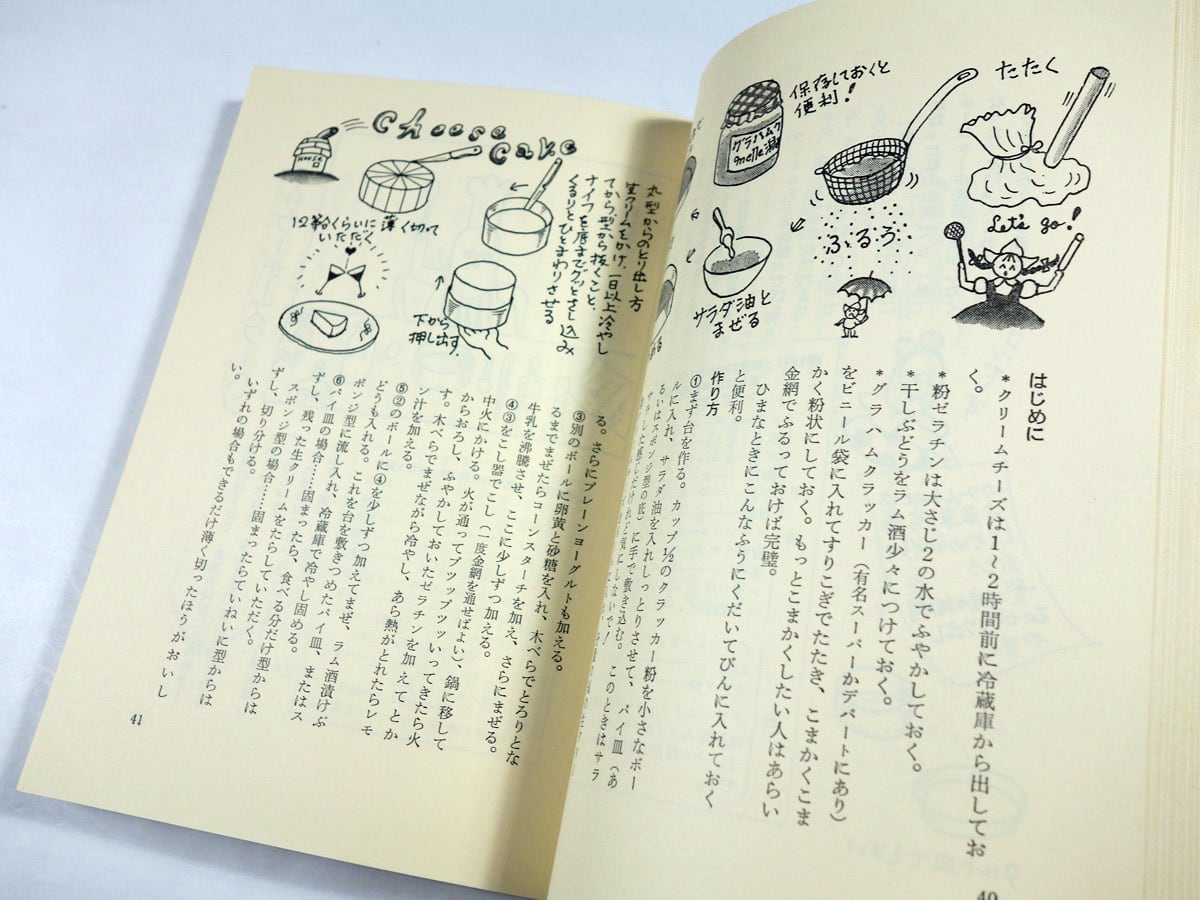 保存しておくと
便利!
グラハムク
たたく
ふるう
Let's go!
サラダ油と
まぜる
はじめに
*クリームチーズは1~2時間前に冷蔵庫から出してお
く。
*粉ゼラチンは大さじ2の水でふやかしておく。
*干しぶどうをラム酒少々につけておく。
*グラハムクラッカー(有名スーパーかデパートにあり)
をビニール袋に入れてすりこぎでたたき、こまかくこま
かく粉状にしておく。もっとこまかくしたい人はあらい
金網でふるっておけば完璧。
ひまなときにこんなふうにくだいてびんに入れておく
と便利。
作り方
①まず台を作る。カップ½のクラッカー粉を小さなボー
ルに入れ、サラダ油を入れしっとりさせて、パイ皿(あ
るいはスポンジ型の底)に手で敷き込む。このときはサラ
40
Cheese
Cake
HOUSE
12等分くらいに薄く切って
いただく
丸型からのとり出し方
生クリームをかけ、一日以上冷やし
てから型から抜くこと、
ナイフを底までグッとさし込み
くるりとひとまわりさせる
下から
押し出す。
る。さらにプレーンヨーグルトも加える。
③別のボールに卵黄と砂糖を入れ、木べらでとろりとな
るまでまぜたらコーンスターチを加え、さらにまぜる。
牛乳を沸騰させ、ここに少しずつ加える。
④③をこし器でこし(一度金網を通せばよい)、鍋に移して
中火にかける。火が通ってプッツプッツいってきたら火
からおろし、ふやかしておいたゼラチンを加えてとか
す。木べらでまぜながら冷やし、あら熱がとれたらレモ
ン汁を加える。
⑤②のボールに④を少しずつ加えてまぜ、ラム酒漬けぶ
どうも入れる。これを台を敷きつめたパイ皿、またはス
ポンジ型に流し入れ、冷蔵庫で冷やし固める。
⑥パイ皿の場合……固まったら、食べる分だけ型からは
ずし、残った生クリームをたらしていただく。
スポンジ型の場合……固まったらていねいに型からは
ずし、切り分ける。
いずれの場合もできるだけ薄く切ったほうがおいし
い。
41